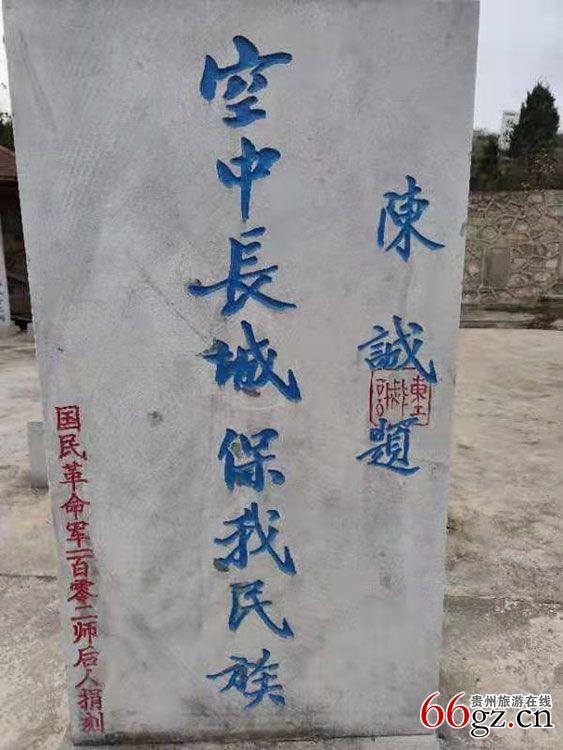 空中長城保我民族
陳誠題
国民革命军一百零二师后人捐刻
贵州旅游在线
66gz.cn